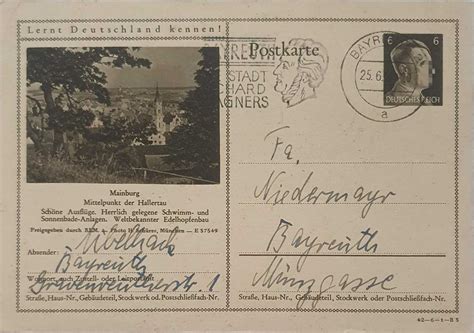 Lernt Deutschland kennen!
Postkarte
BAYREUTH
STADT
RICHARD
WAGNERS
BAYREUTH
25.6.
a
6 6
DEUTSCHES REICH
Mainburg
Mittelpunkt der Hallertau
Schöne Ausflüge. Herrlich gelegene Schwimm- und
Sonnenbade-Anlagen. Weltbekannter Edelhopfenbau
Freigegeben durch RLM.
München — E 57549
Absender:
Bayreuth
1
Wohnort, auch Zustell- oder Leitpostamt
Straße, Haus-Nr., Gebäudeteil, Stockwerk od. Postschließfach-Nr.
Fa.
Niedermayr
Bayreuth
Münzgasse
Straße, Haus-Nr., Gebäudeteil, Stockwerk oder Postschließfach-Nr.